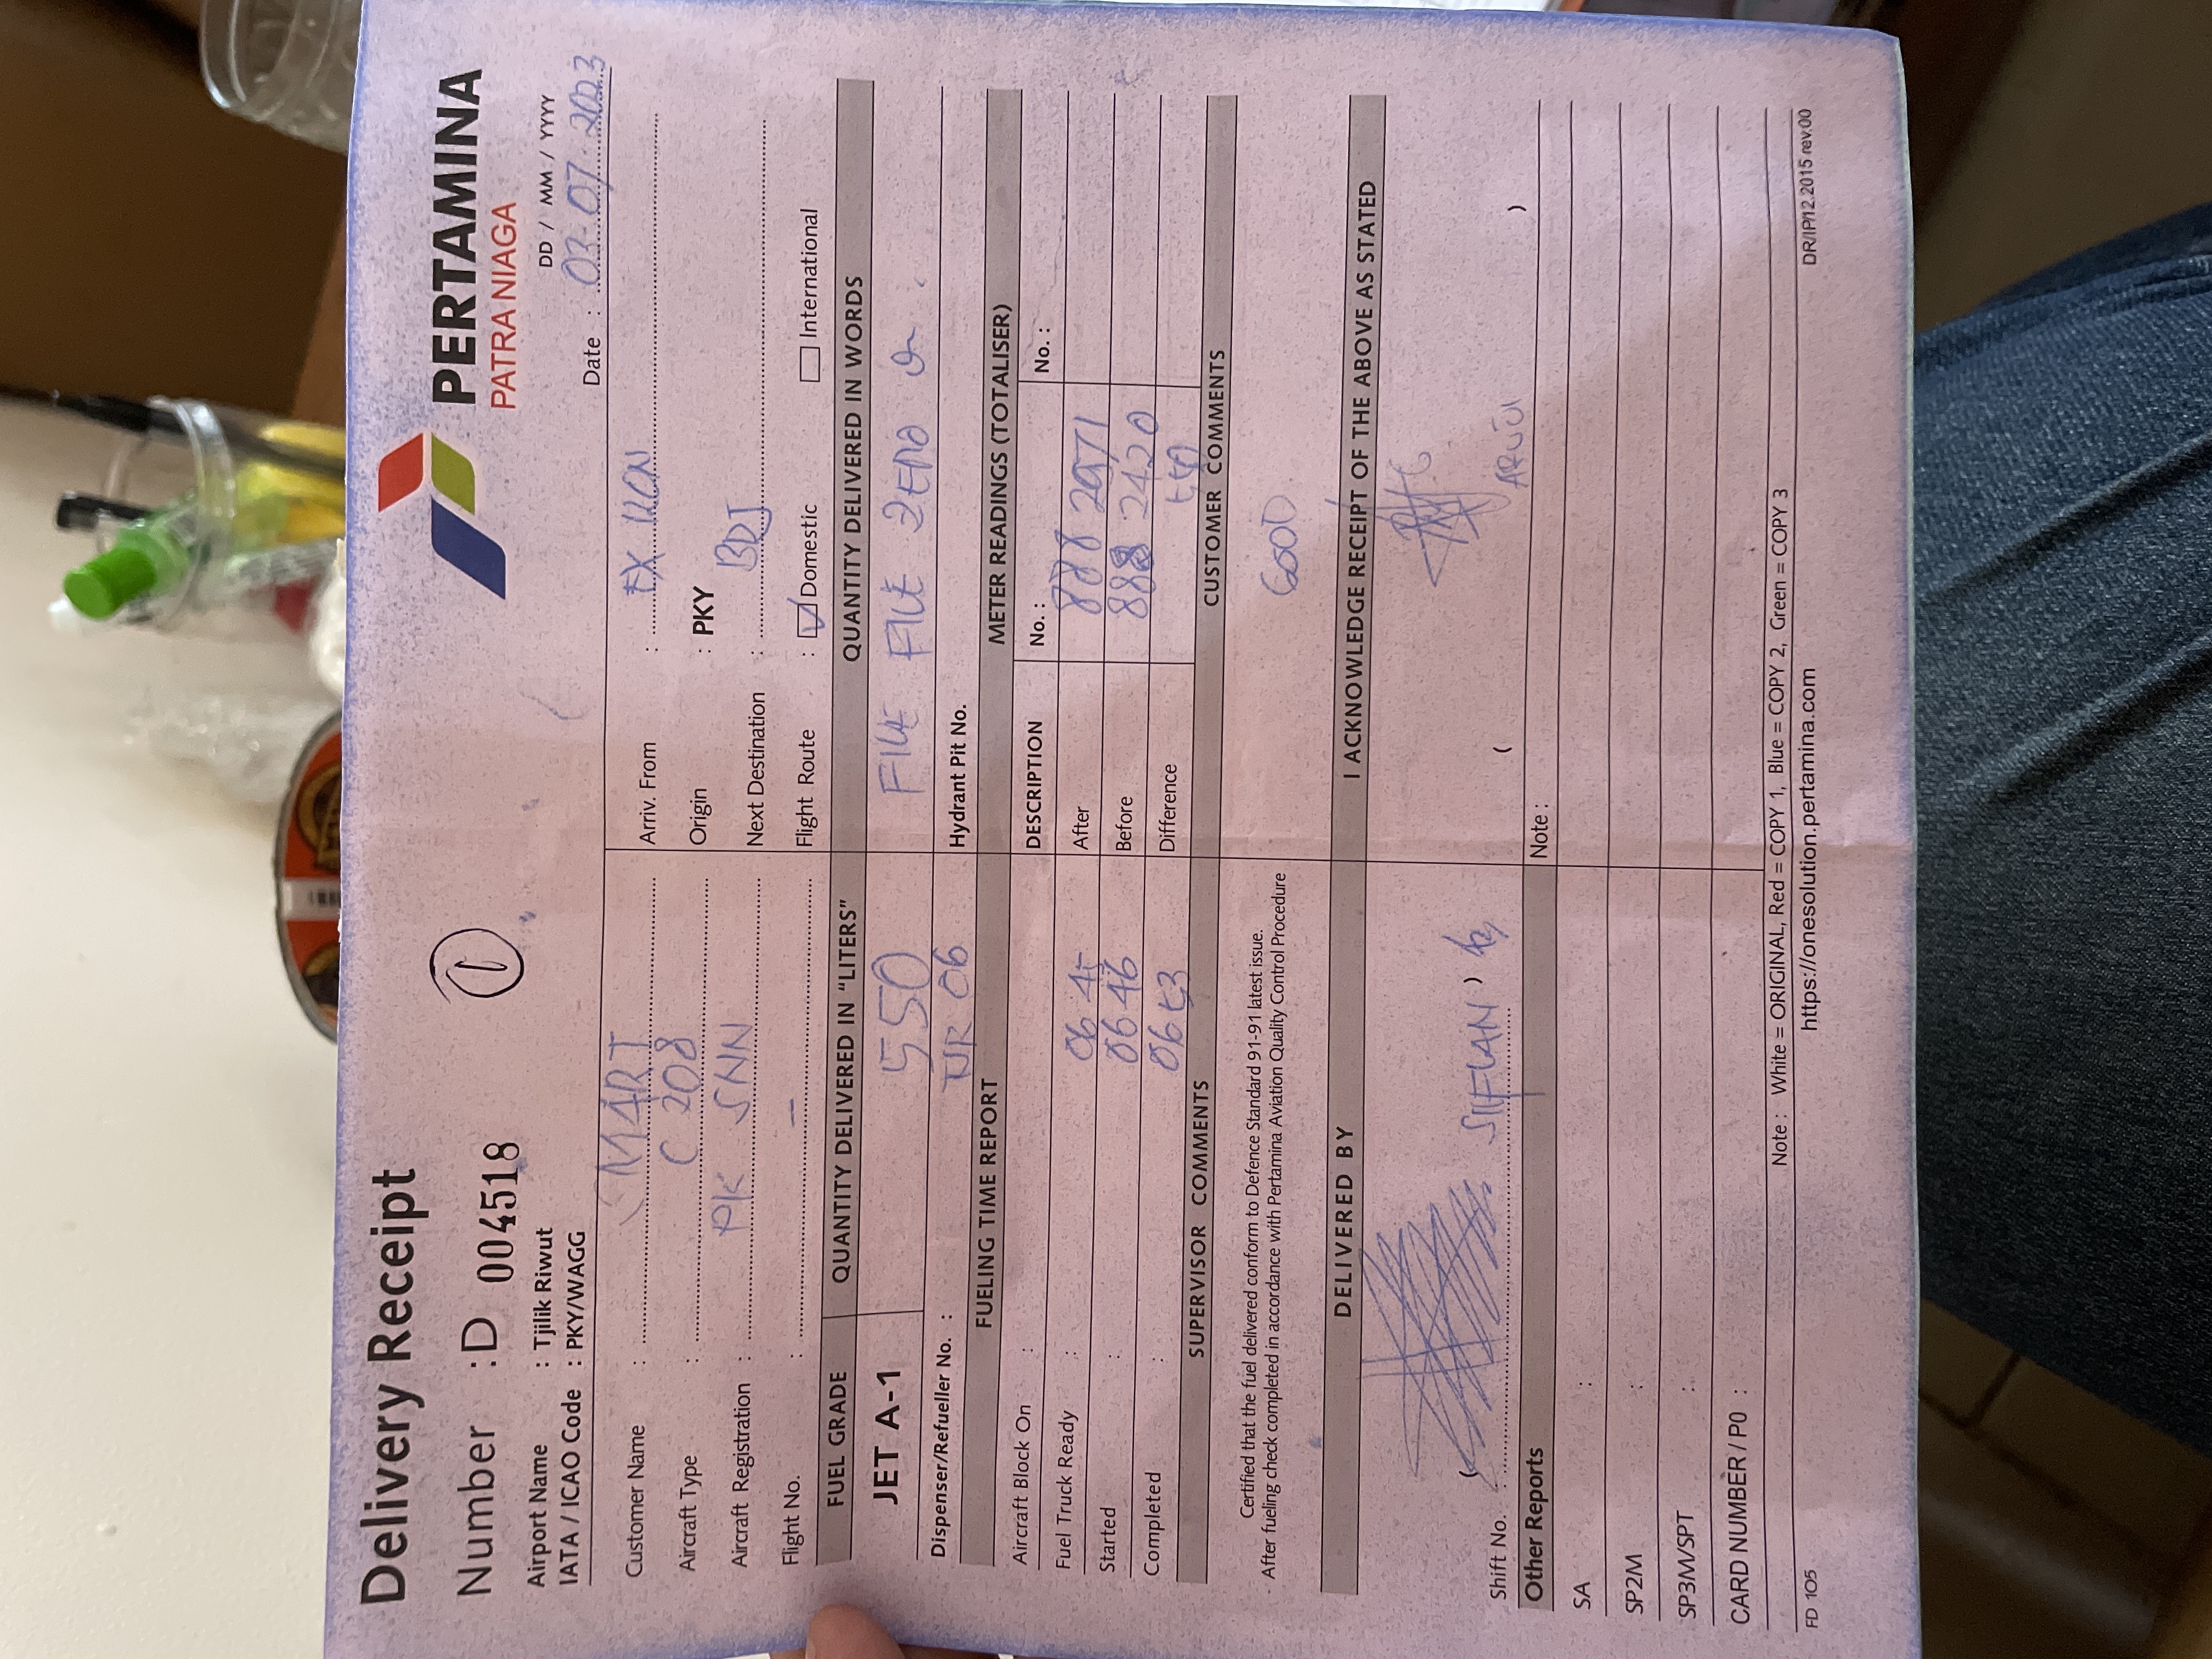 Delivery Receipt
PERTAMINA
PATRA NIAGA
Number : D 004518
1
DD / MM / YYYY
Airport Name : Tjilik Riwut
Date : 03-07-2023
IATA / ICAO Code : PKY/WAGG
Customer Name : SMART
Arriv. From : EX RON
Aircraft Type : C 208
Origin : PKY
Aircraft Registration : PK SNN
Next Destination : BDJ
Flight No. : -
Flight Route : Domestic International
FUEL GRADE QUANTITY DELIVERED IN "LITERS" QUANTITY DELIVERED IN WORDS
JET A-1 550 FIVE FIVE ZERO
Dispenser/Refueller No. : 06
Hydrant Pit No.
FUELING TIME REPORT METER READINGS (TOTALISER)
Aircraft Block On :
DESCRIPTION No. : No. :
Fuel Truck Ready : 06 45
After 888 2971
Started : 06 46
Before 888 2420
Completed : 06 53
Difference
SUPERVISOR COMMENTS CUSTOMER COMMENTS
Certified that the fuel delivered conform to Defence Standard 91-91 latest issue.
- After fueling check completed in accordance with Pertamina Aviation Quality Control Procedure
GOOD
DELIVERED BY I ACKNOWLEDGE RECEIPT OF THE ABOVE AS STATED
( )
( )
Shift No. :
Other Reports
Note :
SA :
SP2M :
SP3M/SPT :
CARD NUMBER / PO :
Note : White = ORIGINAL, Red = COPY 1, Blue = COPY 2, Green = COPY 3
FD 105
https://onesolution.pertamina.com
DR/IP/12.2015 rev.00